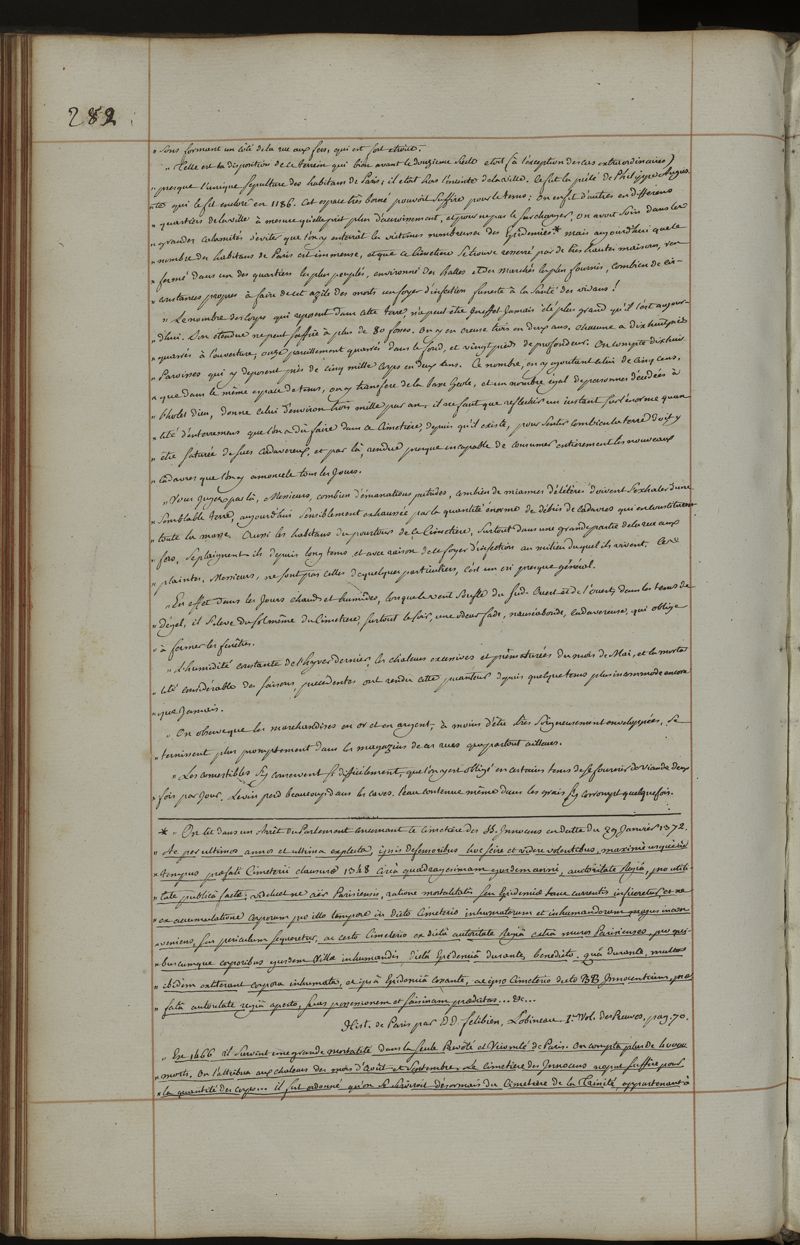 282.
" Sons formant un côté de la rue aux fers, qui est fort étroite.
" Telle est la disposition de ce terrein qui bien avant le douzieme Siecle etoit (à l'exception des cas extraordinaires)
" presque l'unique Sepulture des habitans de Paris; il etait hors l'enceinte de la ville. Ce fut la piété de Philippe Augus
" te qui le fit enclore en 1186. Cet espace très borné pouvoit suffire pour le tems; On en fit d'autres en differens
" quartiers de la ville à mesure qu'elle prit plus d'accroissement, et pour ne pas le surcharger, on avoit Soin dans les
" grandes calamités d'eviter que l'on y enterrât les victimes nombreuses des Epidemies* mais aujourd'hui que le
" nombre des habitans de Paris est immense, et que ce Cimetiere se trouve resserré par de très hautes maisons, ren
" fermé dans un des quartiers les plus peuplés, environné des halles et des marchés les plus fournis, combien de cir-
" constances propres à faire de cet azile des morts un foyer d'infection funeste à la Santé des vivans!
" Le nombre des corps qui reposent dans cette terre, n'a peut être en effet Jamais été plus grand qu'il l'est aujour-
" d'hui. Son etendue ne peut suffire à plus de 80 fosses. On y en creuse trois en deux ans, chacune a dix huit pieds
" quarrés à l'ouverture, onze pareillement quarrés dans le fond, et vingt pieds de profondeur. On compte dix huit
" Paroisses qui y deposent près de cinq mille corps en deux ans. Ce nombre, en y ajoutant celui de cinq cens,
" que dans le même espace de tems, on y transfere de la basse Geole, et un nombre egal de personnes decédées à
" l'hotel dieu, donne celui d'environ trois mille par an; il ne faut que reflechir un instant sur l'enorme quan
" tité d'enterremens que l'on a dû faire dans ce Cimetiere, depuis qu'il existe, pour sentir combien la terre doit y
" être saturée de sucs cadavereux, et par là, rendue presque incapable de consumer entierement les nouveaux
" cadavres que l'on y amoncele tous les Jours.
" Vous jugez par là, Messieurs, combien d'émanations putrides, combien de miasmes déléteres doivent s'exhaler d'une
" Semblable terre, aujourd'hui sensiblement exhaussée par la quantité énorme de débris de cadavres qui en constituent
" toute la masse. Aussi les habitans du pourtour de ce Cimetiere, surtout dans une grande partie de la rue aux
" fers, se plaignent-ils depuis longtems et avec raison de ce foyer d'infection au milieu duquel ils vivent. Ces
" plaintes, Messieurs, ne sont pas celles de quelques particuliers, c'est un cri presque général.
" En effet dans les jours chauds et humides, lorsque le vent Souffle du Sud-Ouest et de l'ouest, dans les tems de
" dégel, il s'eleve du sol même du Cimetiere, surtout le soir, une odeur fade, nauséabonde, cadavereuse, qui oblige
" à fermer les fenêtres.
" L'humidité constante de l'hyver dernier, les chaleurs excessives et prématurées du mois de Mai, et la morta
" lité considérable des saisons precedentes ont rendu cette puanteur depuis quelque tems plus incommode encore
" que jamais.
" On observe que les marchandises en or et en argent, à moins d'être très Soigneusement enveloppées, se
" ternissent plus promptement dans les magazins de ces rues que partout ailleurs.
" Les comestibles s'y conservent si difficilement, que l'on y est obligé en certains tems de se fournir de viande deux
" fois par jour. Le vin perd beaucoup dans les caves. l'eau contenue même dans les grais s'y corrompt quelquefois.
* " On lit dans un Arrêt du Parlement concernant le Cimetiere des SS. Innocens en datte du 29 Janvier 1372.
" Ac per ultimos annos et ultima expleta, ipsis defensoribus hoc scire et videre volentibus, maximè
" tempus præfati Cimeterii clausuræ 1348 circà quadragesimam ejusdem anni, autoritate Regiâ, pro utili-
" tate publicâ factæ, videlicet ne aër Parisiensis, ratione mortalitatis seu Epidemiæ tunc currentis inficeretur, et ne
" ex accumulatione corporum pro illo tempore in dicto Cimeterio inhumatorum et inhumandorum majus incon
" veniens, seu periculum sequeretur, ac certo Cimeterio ex dictâ autoritate Regiâ extrà muros Parisienses, pro qui-
" buscumque corporibus ejusdem Villæ inhumandis dictâ Epidemiâ durante, benedicto. quâ durante, multa
" ibidem extiterant corpora inhumata, ac ipsâ Epidemiâ cessante, ac ipso Cimeterio dicto BB. Innocentium, præ
" fatâ autoritate regiâ aperto, suas possessionem et saisinam prædictas... &c...
Hist. de Paris par DD. felibien, Lobineau 1er. Vol. des Preuves, pag. 70.
" En 1466 il survint une grande mortalité dans la seule Prevôté et Vicomté de Paris. On compta plus de 40000
" morts. On l'attribua aux chaleurs des mois d'Août et Septembre. Le cimetiere des Innocens ne put suffire pour
" la quantité des corps... il fut ordonné qu'on se serviroit désormais du Cimetiere de la Trinité, appartenant à